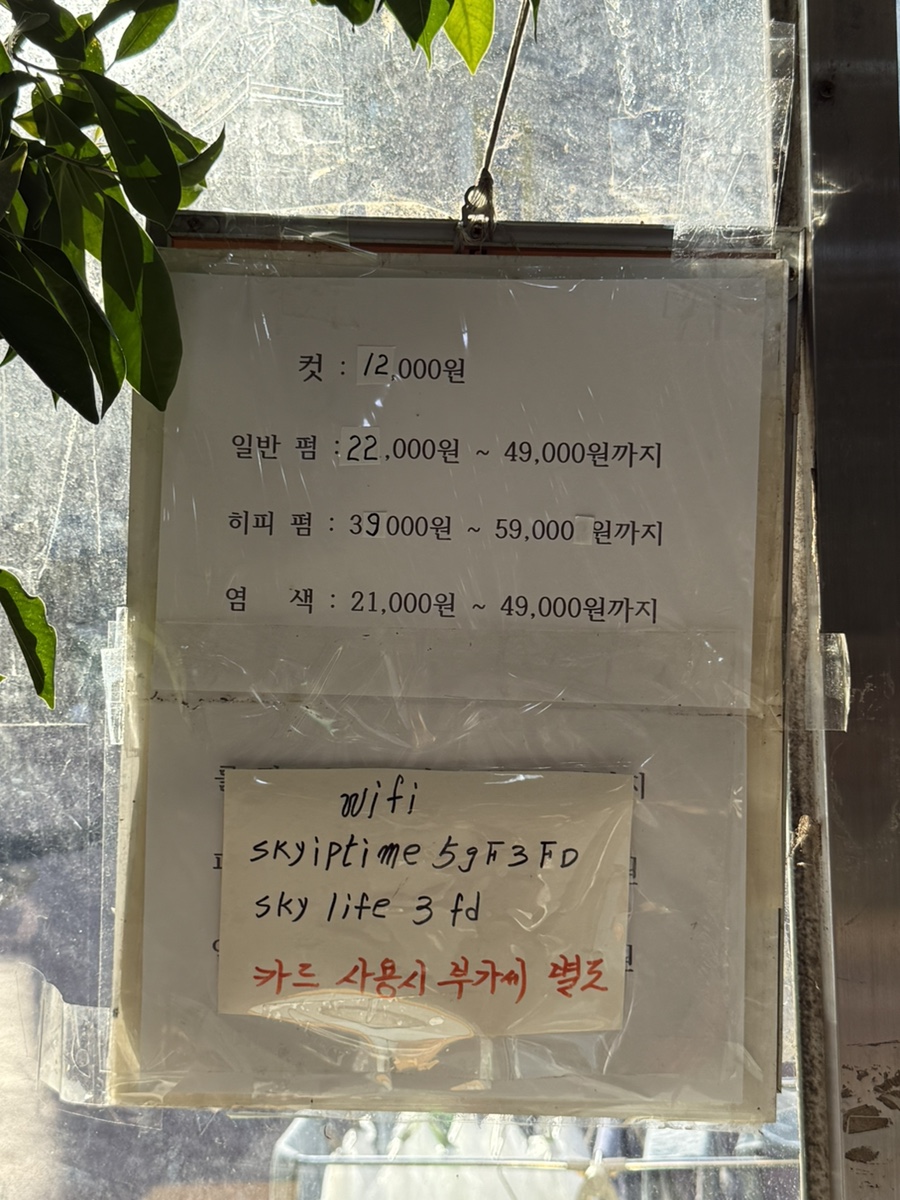 컷 : 12,000원
일반 펌 : 22,000원 ~ 49,000원까지
히피 펌 : 39000원 ~ 59,000 원까지
염 색 : 21,000원 ~ 49,000원까지
wifi
skyiptime 5gF3FD
sky life 3fd
카드 사용시 부가세 별도